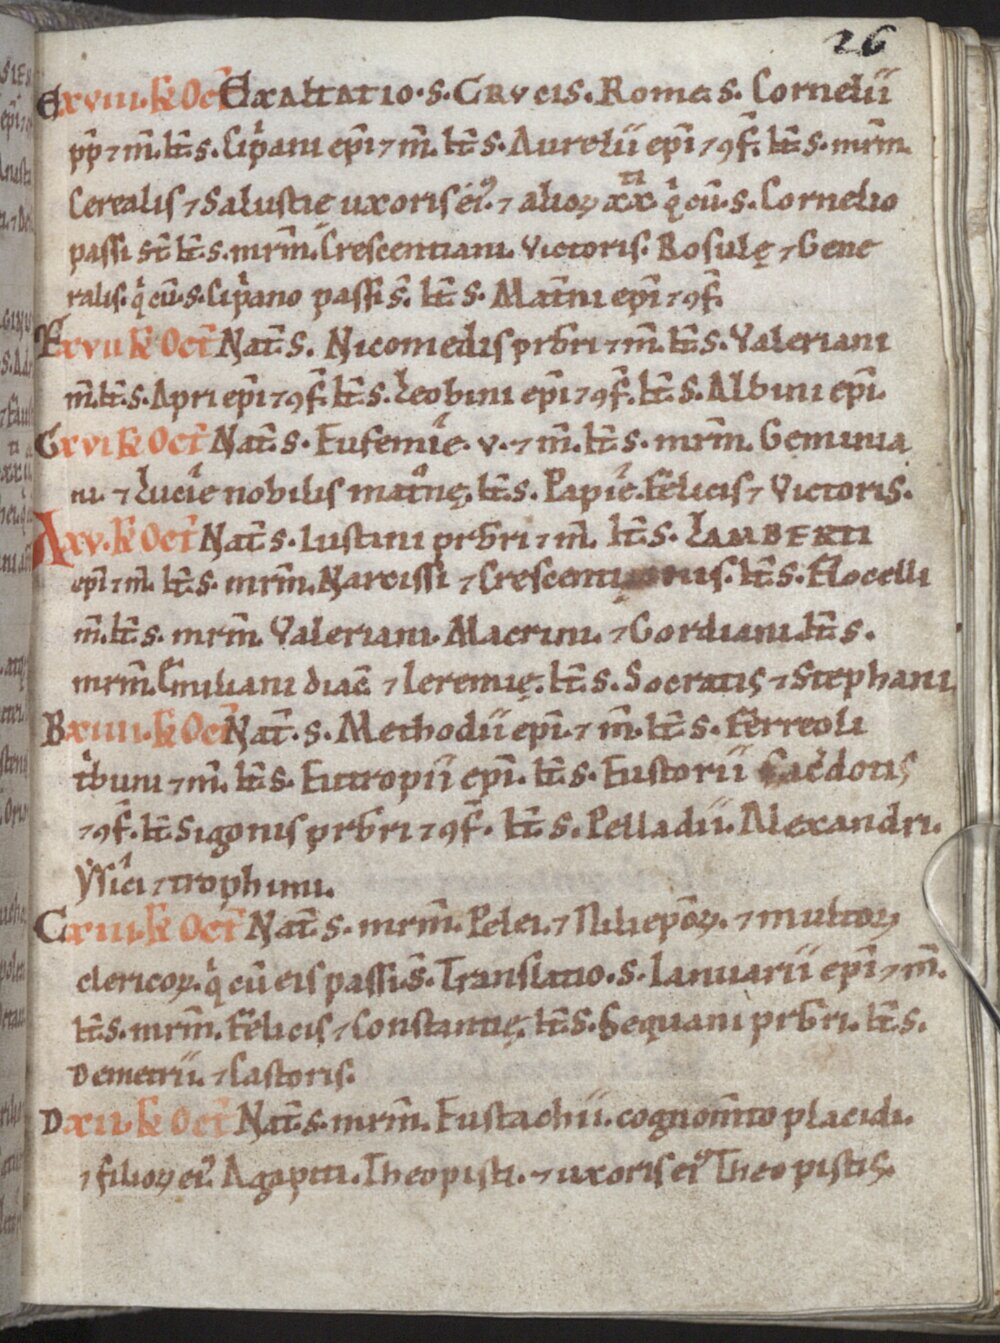 26
E xviii. k̅ Oct̅ Exaltatio. s. Crucis. Rome. s. Cornelii
pp̅ ⁊ m̅. It̅. s. Cip̅ani ep̅i ⁊ m̅. It̅. s. Aurelii ep̅i ⁊ ꝯf̅. It̅. s. mr̅m.
Cerealis ⁊ Salustię uxoris ei᷒. ⁊ alioꝝ xx^ti q̅ cū. s. Cornelio
passi st̅. It̅. s. mr̅m. Crescentiani. Victoris. Rosulę ⁊ Gene
ralis. q̅ cū. s. Cip̅ano passi s̅. It̅. s. Mat̅ni ep̅i ⁊ ꝯf̅.
F xvii k̅ Oct̅ Nat̅. s. Nicomedis pr̅bri ⁊ m̅. It̅. s. Valeriani
m̅. It̅. s. Apri ep̅i ⁊ ꝯf̅. It̅. s. Leobini ep̅i ⁊ ꝯf̅. It̅. s. Albini ep̅i.
G xvi k̅ Oct̅ Nat̅. s. Eufemie. v. ⁊ m̅. It̅. s. mr̅m. Geminia
ni. ⁊ Lucie nobilis mat°nę. It̅. s. Papie. Felicis ⁊ Victoris.
A xv. k̅ Oct̅ Nat̅. s. Iustini pr̅bri ⁊ m̅. It̅. s. Lamberti
ep̅i ⁊ m̅. It̅. s. mr̅m. Narcissi ⁊ Crescentionis. It̅. s. Flocelli
m̅. It̅. s. mr̅m. Valeriani. Macrini. ⁊ Gordiani. It̅. s.
mr̅m. Emiliani diac̅ ⁊ Ieremię. It̅. s. Socratis ⁊ Stephani.
B xiiii. k̅ Oct̅ Nat̅. s. Methodii ep̅i. ⁊ m̅. It̅. s. Ferreoli
t̅buni ⁊ m̅. It̅. s. Eutropii ep̅i. It̅. s. Eustorii Sac̅dotis
⁊ ꝯf̅. It̅. Sigonis pr̅bri ⁊ ꝯf̅. It̅. s. Pelladii. Alexandri.
Ysici ⁊ trophimi.
C xiii. k̅ Oct̅ Nat̅. s. mr̅m. Pelei. ⁊ Nili ep̅oꝝ. ⁊ multoꝝ
clericoꝝ. q̅ cū eis passi s̅. Translatio. s. Ianuarii ep̅i ⁊ m̅.
It̅. s. mr̅m. Felicis ⁊ Constantię. It̅. s. Sequani pr̅bri. It̅. s.
Demetrii. ⁊ Castoris.
D xii. k̅ Oct̅ Nat̅. s. mr̅m. Eustachii. cognom̅to placidi.
⁊ filioꝝ ei᷒. Agapiti. Theopisti. ⁊ uxoris ei᷒ Theopistis.